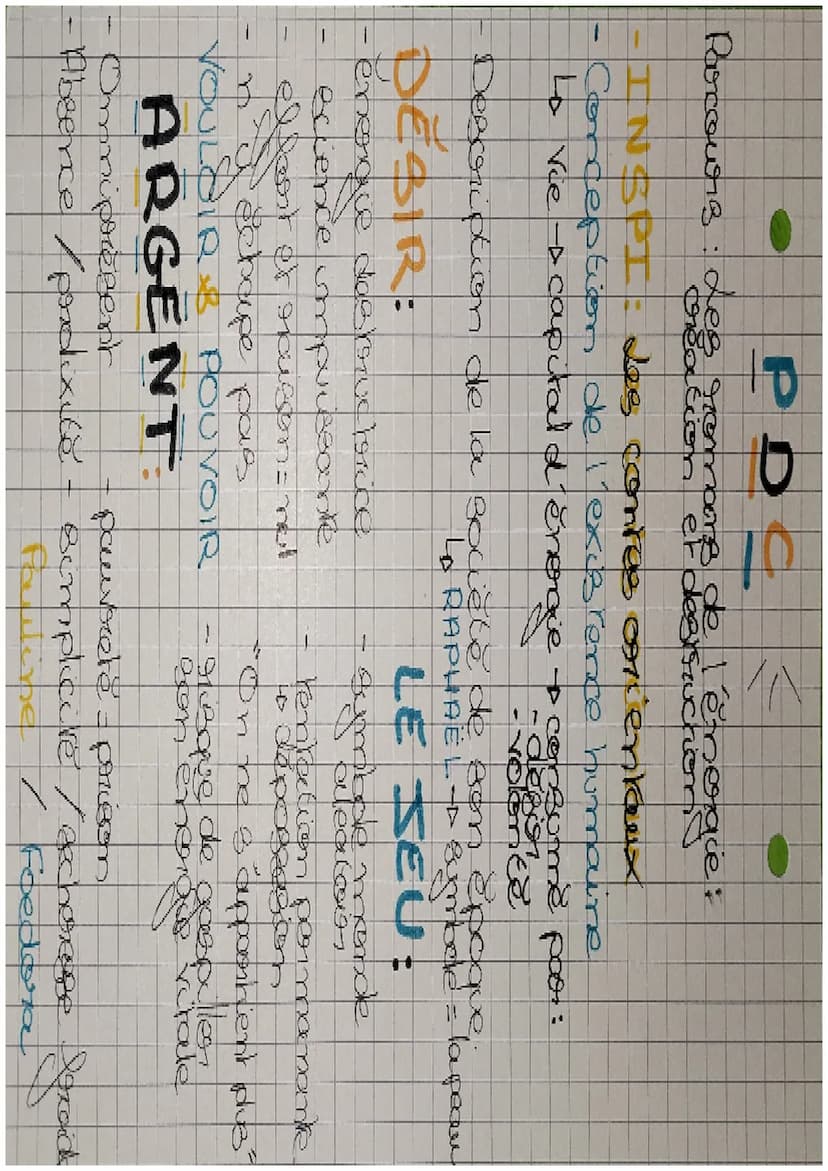 PDC
Parcours : Les romans de l'énergie :
création et destruction
- INSPI : Les contes orientaux
- Conception de l'existence humaine
↳ Vie → capital d'énergie → consumé par :
- désir
- volonté
- Description de la société de son époque.
↳ RAPHAËL → symbole = la peau
DÉSIR :
- énergie destructrice
- science impuissante
- effort et raison = nul
- n'y échappe pas
VOULOIR & POUVOIR
LE JEU :
- symbole monde
aléatoire
- tentation permanente
→ dépossession
"On ne s'appartient plus"
- risque de gaspiller
son énergie vitale
ARGENT :
- Omniprésent
- Absence / prolixité
- pauvreté = prison
- simplicité / richesse froid
Pauline / Foedora